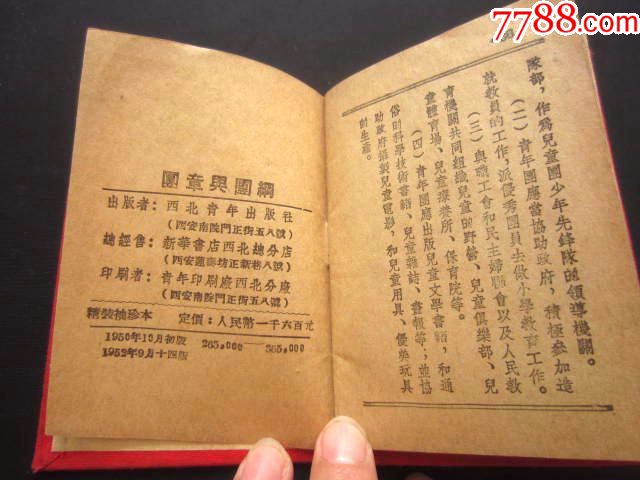 7788.com
團章與團綱
出版者：西北青年出版社
（西安南院門正街五八號）
總經售：新華書店西北總分店
印刷者：青年印刷廠西北分廠
（西安南院門正街五八號）
精裝袖珍本 定價：人民幣一千六百元
1950年10月初版
1952年9月十四版
265,000——385,000
隊部，作爲兒童團少年先鋒隊的領導機關。
（二）青年團應當協助政府，積極參加造
就教員的工作，派優秀團員去做小學教育工作。
（三）與職工會和民主婦聯會以及人民教
育機關共同組織兒童的野營、兒童俱樂部、兒
童體育場、兒童療養所、保育院等。
（四）青年團應出版兒童文學書籍，和通
俗的科學技術書籍、兒童雜誌、畫報等；並協
助政府攝製兒童電影，和兒童用具、優美玩具
的生產。